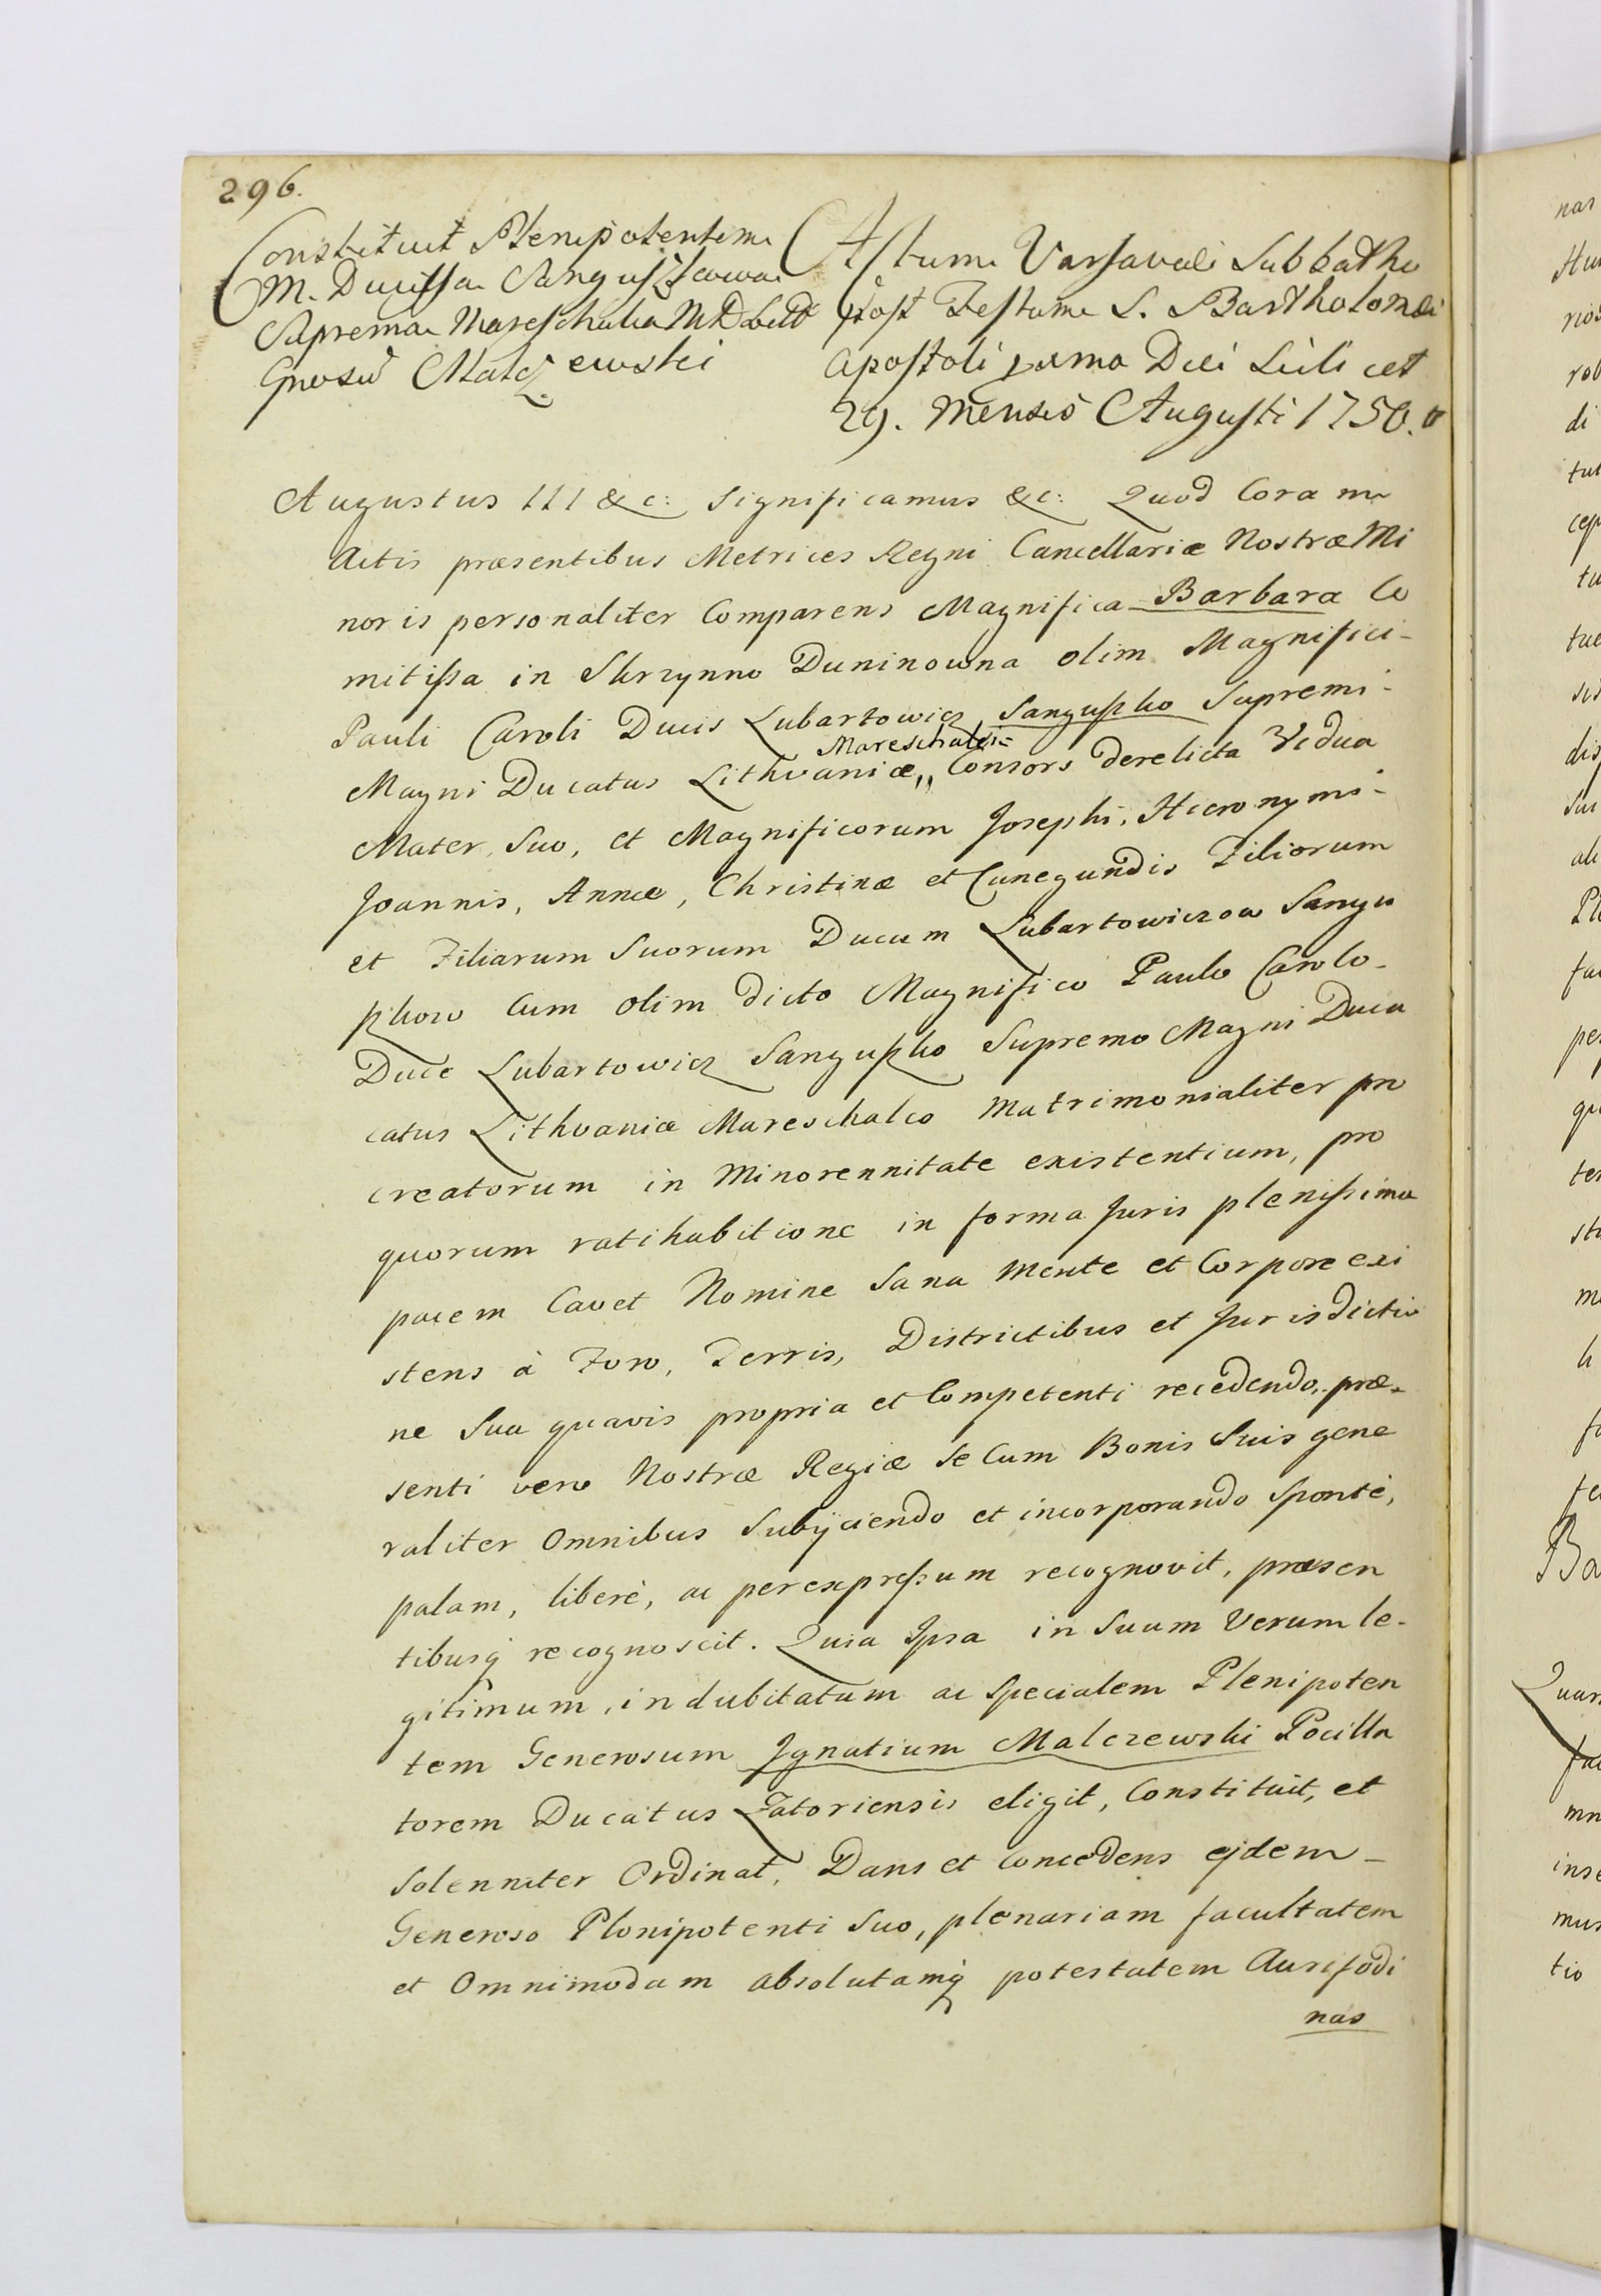 296.
Constituit Plenipotentem
M. Ducissa Sanguszkowa
Suprema Mareschalca M D Litt
Gnosũ Malczewski
Actum Varsaviæ Sabbatho
post Festum S. Bartholomæi
Apostoli pxmo Die Scilicet
29. Mensis Augusti 1750.
Augustus III &c: Significamus &c: Quod Coram
Actis præsentibus Metrices Regni Cancellariæ Nostræ Mi
noris personaliter Comparens Magnifica Barbara Co
mitissa in Skrzynno Duninowna olim Magnifici-
Pauli Caroli Ducis Lubartowicz Sanguszko Supremi-
Mareschalci-
Magni Ducatus Lithvaniæ,, Consors derelicta Vidua
Mater, Suo, et Magnificorum Josephi, Hieronymi-
Joannis, Annæ, Christinæ et Cunegundis Filiorum
et Filiarum Suorum Ducum Lubartowiczow Sangu
szkow Cum olim dicto Magnifico Paulo Carolo-
Duce Lubartowicz Sanguszko Supremo Magni Duca
catus Lithvaniæ Mareschalco Matrimonialiter pro
creatorum in Minorennitate existentium, pro
quorum ratihabitione in forma Juris plenissima
pacem Cavet Nomine Sana Mente et Corpore exi
stens à Foro, Terris, Districtibus et Jurisdictio
ne Sua quavis propria et Competenti recedendo, præ-
senti vero Nostræ Regiæ se Cum Bonis Suis gene
raliter Omnibus Subijciendo et incorporando Sponte,
palam, liberè, ac per expressum recognovit, præsen
tibusq recognoscit. Quia Ipsa in Suum Verum le-
gitimum, indubitatum ac Specialem Plenipoten
tem Generosum Ignatium Malczewski Pocilla
torem Ducatus Zatoriensis eligit, Constituit, et
Solenniter Ordinat, Dans et Concedens ejdem-
Generoso Plenipotenti Suo, plenariam facultatem
et Omnimodam absolutamq potestatem Aurifodi
nas
nas
rios
rob
di
cep
tu
tue
dis
per
ter
Ba
Quar
mn
inse
mus
tio